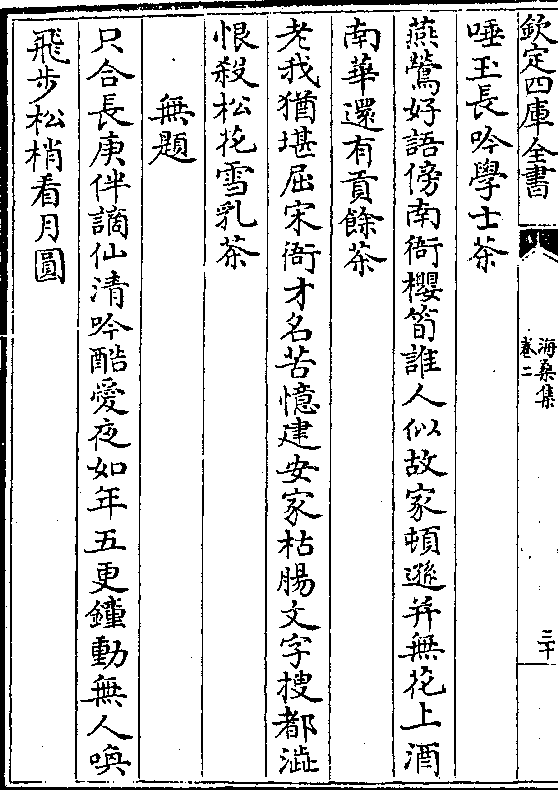 欽定四庫全書
海桑集
卷二
三十
唾玉長吟學士茶
燕鶯好語傍南衙櫻筍誰人似故家頓遜并無花上酒
南華還有貢餘茶
老我猶堪屈宋衙才名苦憶建安家枯腸文字搜都澁
恨殺松花雪乳茶
無題
只合長庚伴謫仙清吟酷愛夜如年五更鐘動無人喚
飛步松梢看月圓